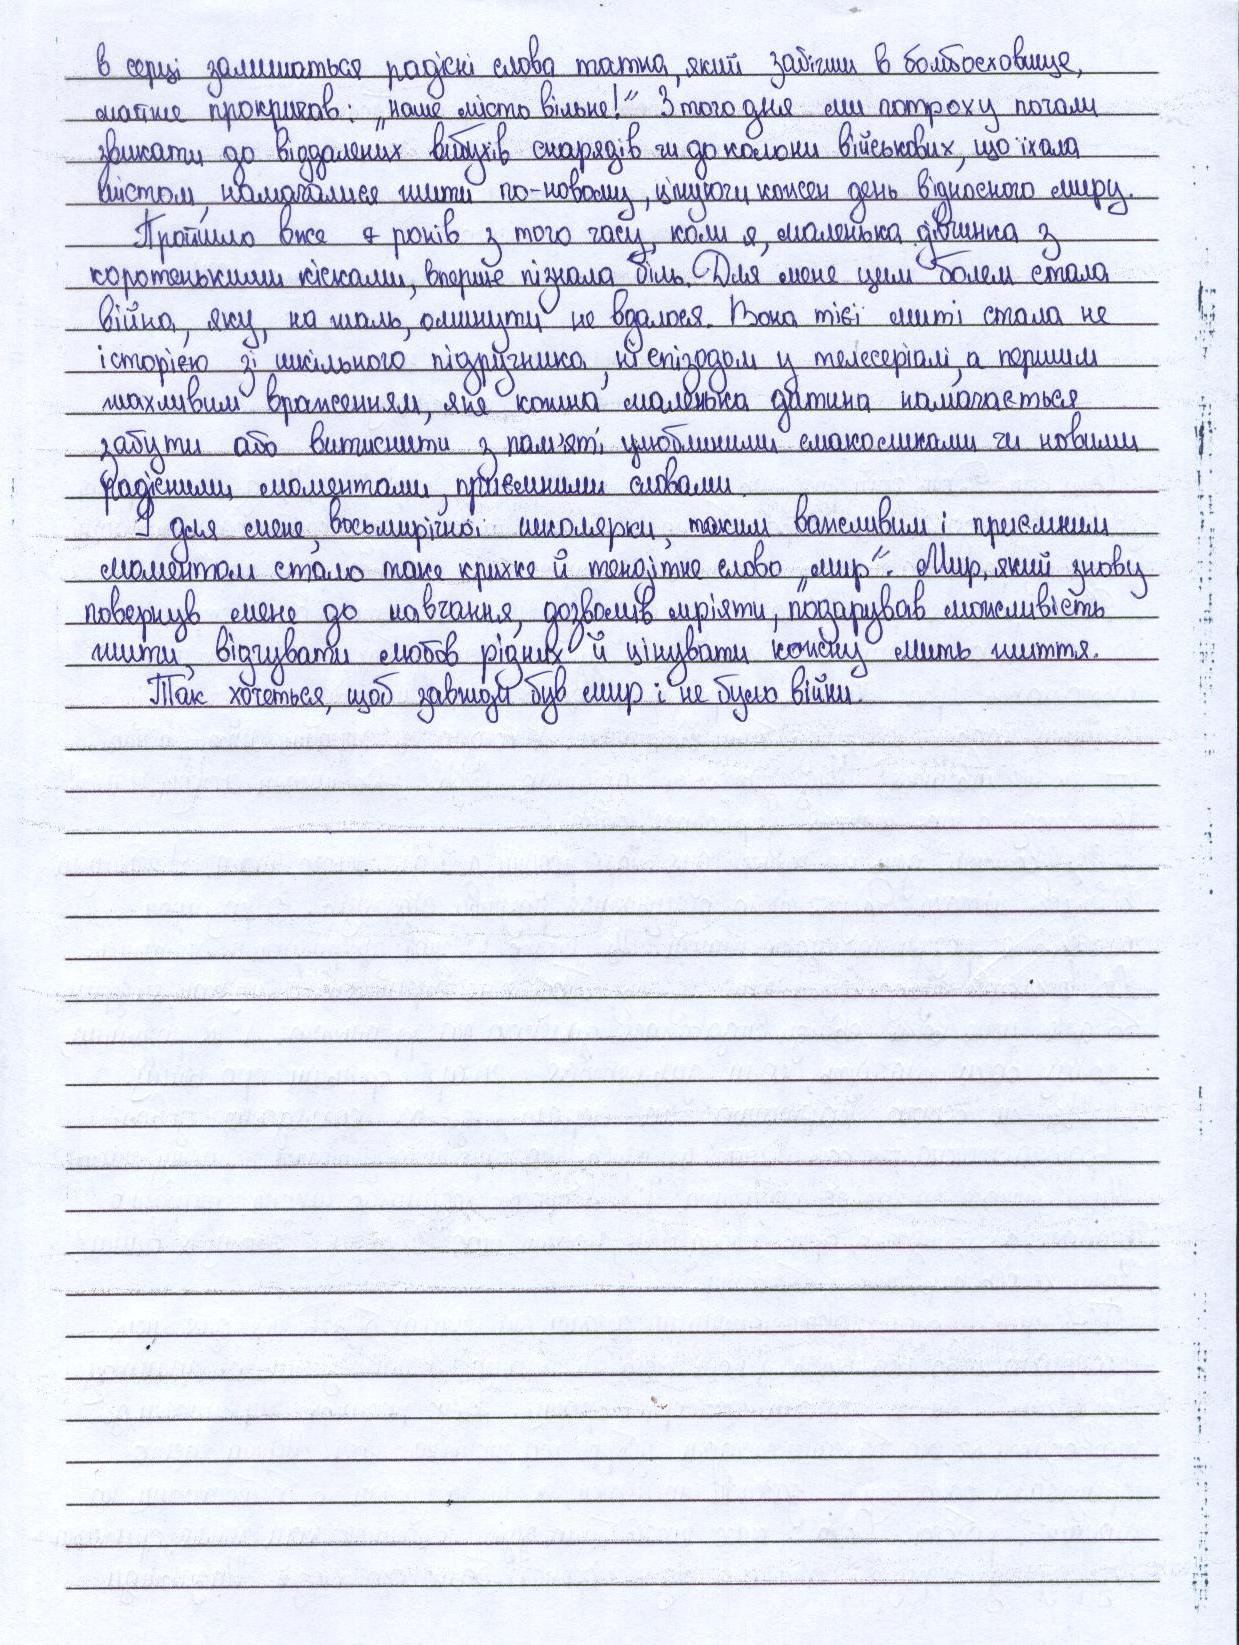 в серці залишаться радісні слова татка, який забігши в бомбосховище,
майже прокричав: „наше місто вільне!" З того дня ми потроху почали
звикати до віддалених вибухів снарядів чи до колони військових, що їхала
містом, намагалися жити по-новому, цінуючи кожен день відносного миру.
Пройшло вже 7 років з того часу, коли я, маленька дівчинка з
коротенькими кісками, вперше пізнала біль. Для мене цим болем стала
війна, яку, на жаль, оминути не вдалося. Вона тієї миті стала не
історією зі шкільного підручника, ні епізодом у телесеріалі, а першим
жахливим враженням, яке кожна маленька дитина намагається
забути або витиснити з пам'яті улюбленими смаколиками чи новими
радісними моментами, приємними словами.
І для мене, восьмирічної школярки, таким важливим і приємним
моментом стало таке крихке й тендітне слово „мир". Мир, який знову
повернув мене до навчання, дозволив мріяти, подарував можливість
жити, відчувати любов рідних й цінувати кожну мить життя.
Так хочеться, щоб завжди був мир і не було війни.